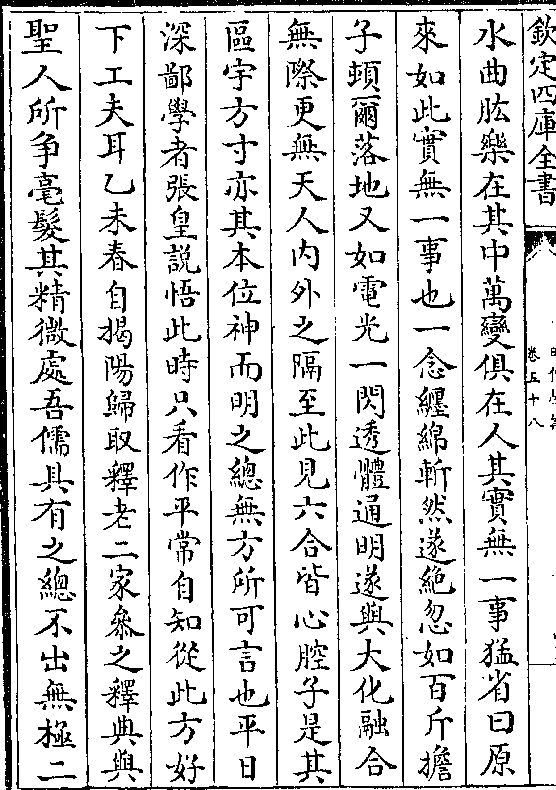 欽定四庫全書
卷五十八
水曲肱樂在其中萬變俱在人其實無一事猛省曰原
來如此實無一事也一念纒綿斬然遂絶忽如百斤擔
子頓爾落地又如電光一閃透體通明遂與大化融合
無際更無天人内外之隔至此見六合皆心腔子是其
區宇方寸亦其本位神而明之總無方所可言也平日
深鄙學者張皇說悟此時只看作平常自知從此方好
下工夫耳乙未春自揭陽歸取釋老二家叅之釋典與
聖人所争毫髮其精微處吾儒具有之總不出無極二